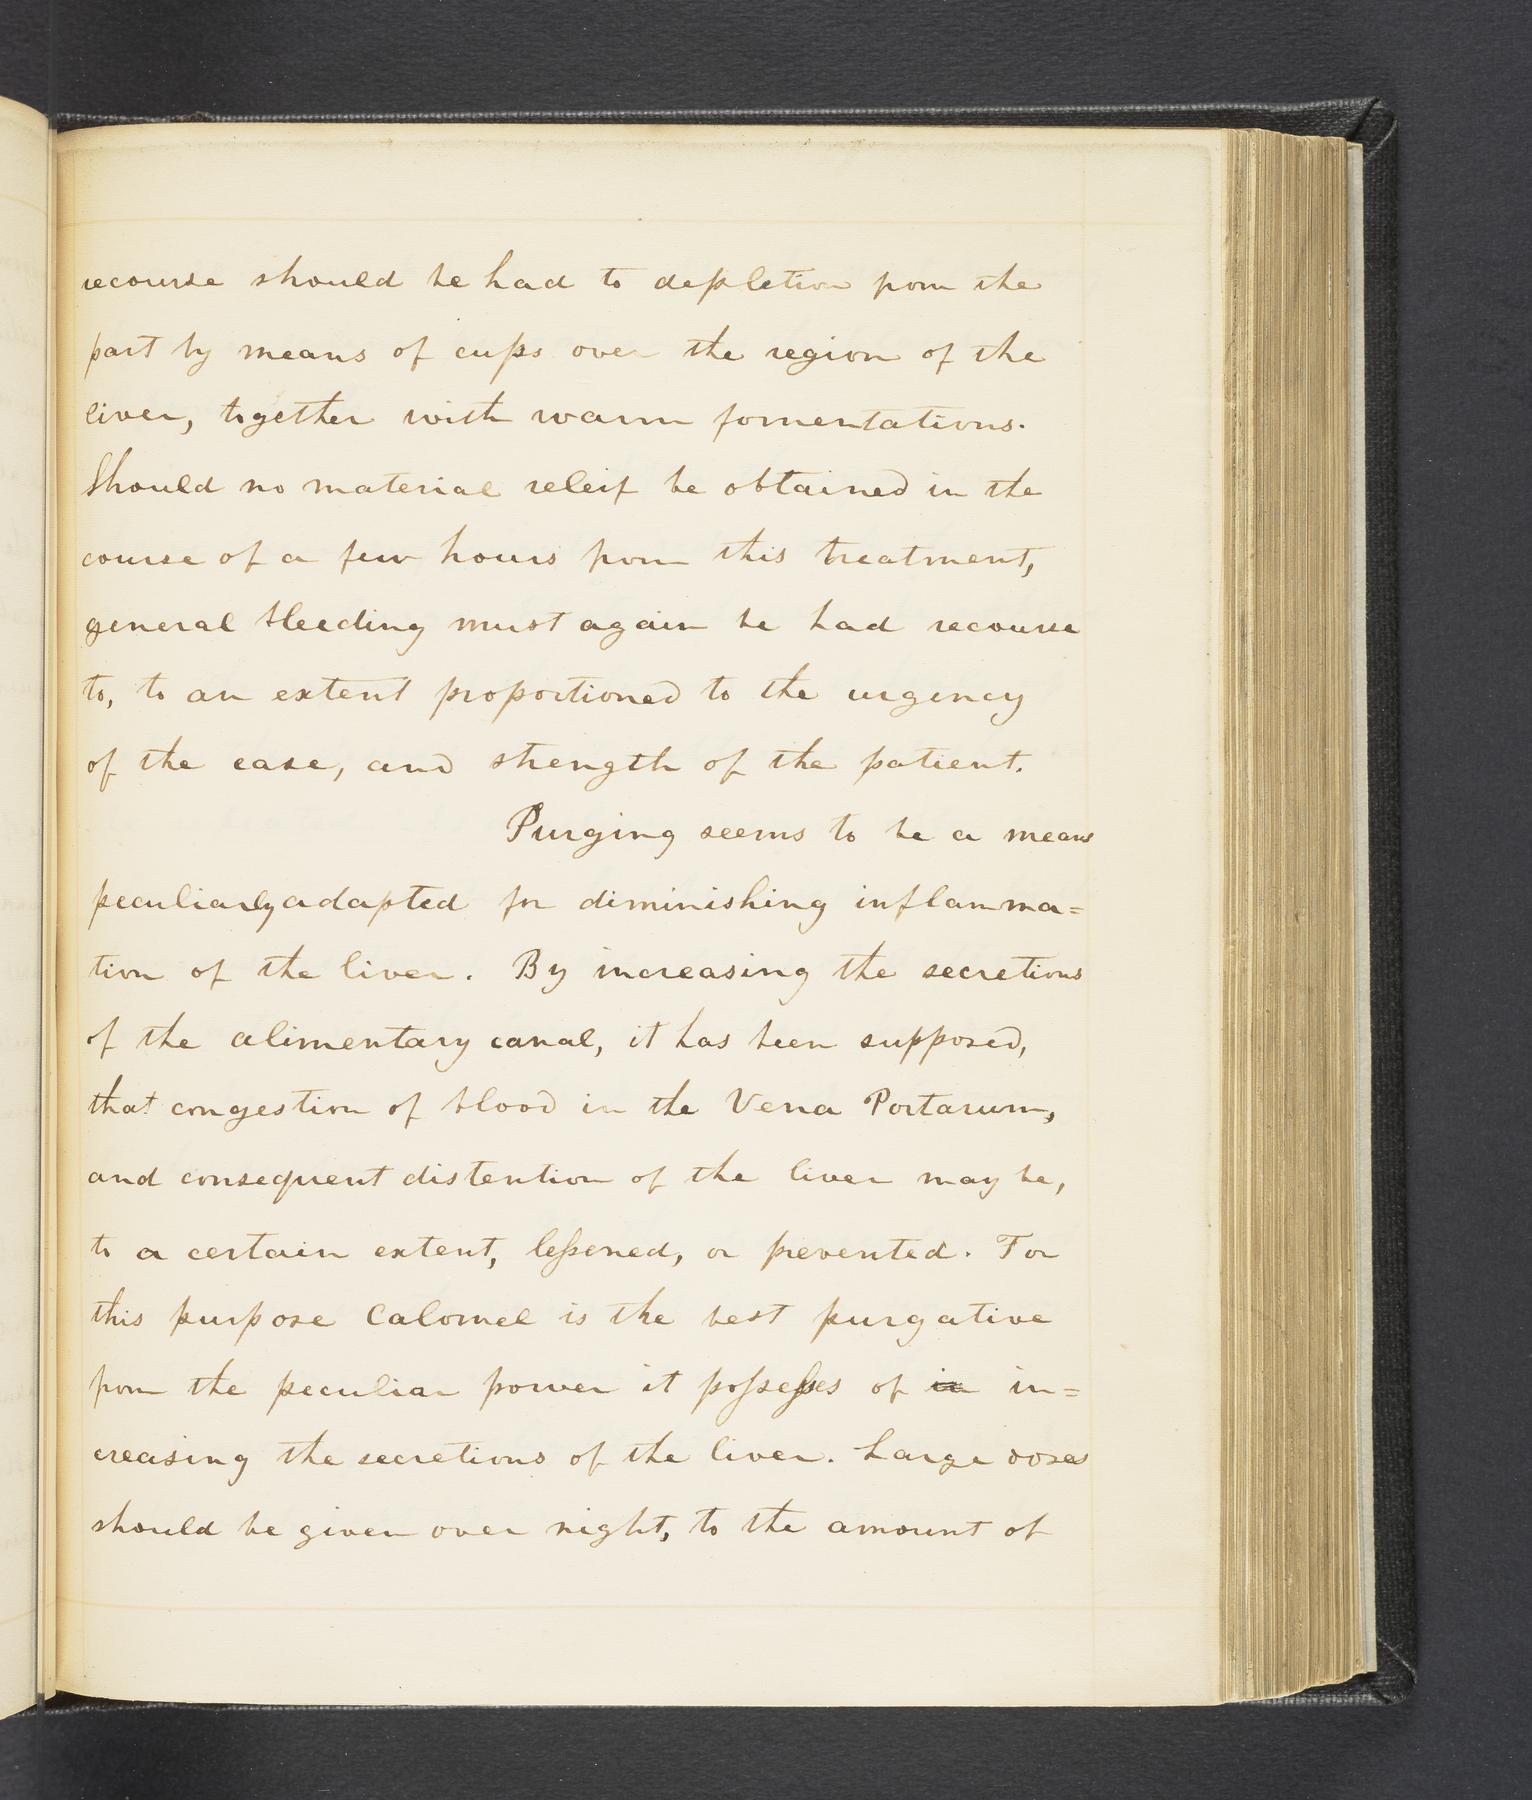 recourse should be had to depletion from the
part by means of cups over the region of the
liver, together with warm fomentations.
Should no material releif be obtained in the
course of a few hours from this treatment,
general bleeding must again be had recourse
to, to an extent proportioned to the urgency
of the case, and strength of the patient.
Purging seems to be a means
peculiarly adapted for diminishing inflamma=
tion of the liver. By increasing the secretions
of the alimentary canal, it has been supposed,
that congestion of blood in the Vena Portarum,
and consequent distention of the liver may be,
to a certain extent, leſsened, or prevented. For
this purpose Calomel is the best purgative
from the peculiar power it poſseſses of in in=
creasing the secretions of the liver. Large doses
should be given over night, to the amount of